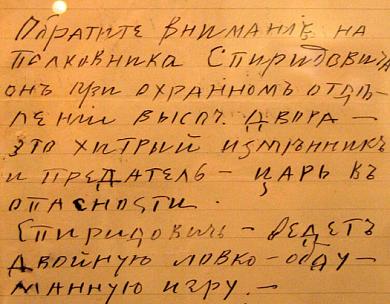 Обратите вниманіе на
Полковника Спиридовича
онъ при охранномъ отдѣ-
леніи высоч. двора —
это хитрый измѣнникъ
и предатель — царь въ
опасности.
Спиридовичъ — ведетъ
двойную ловко-обду-
манную игру. —